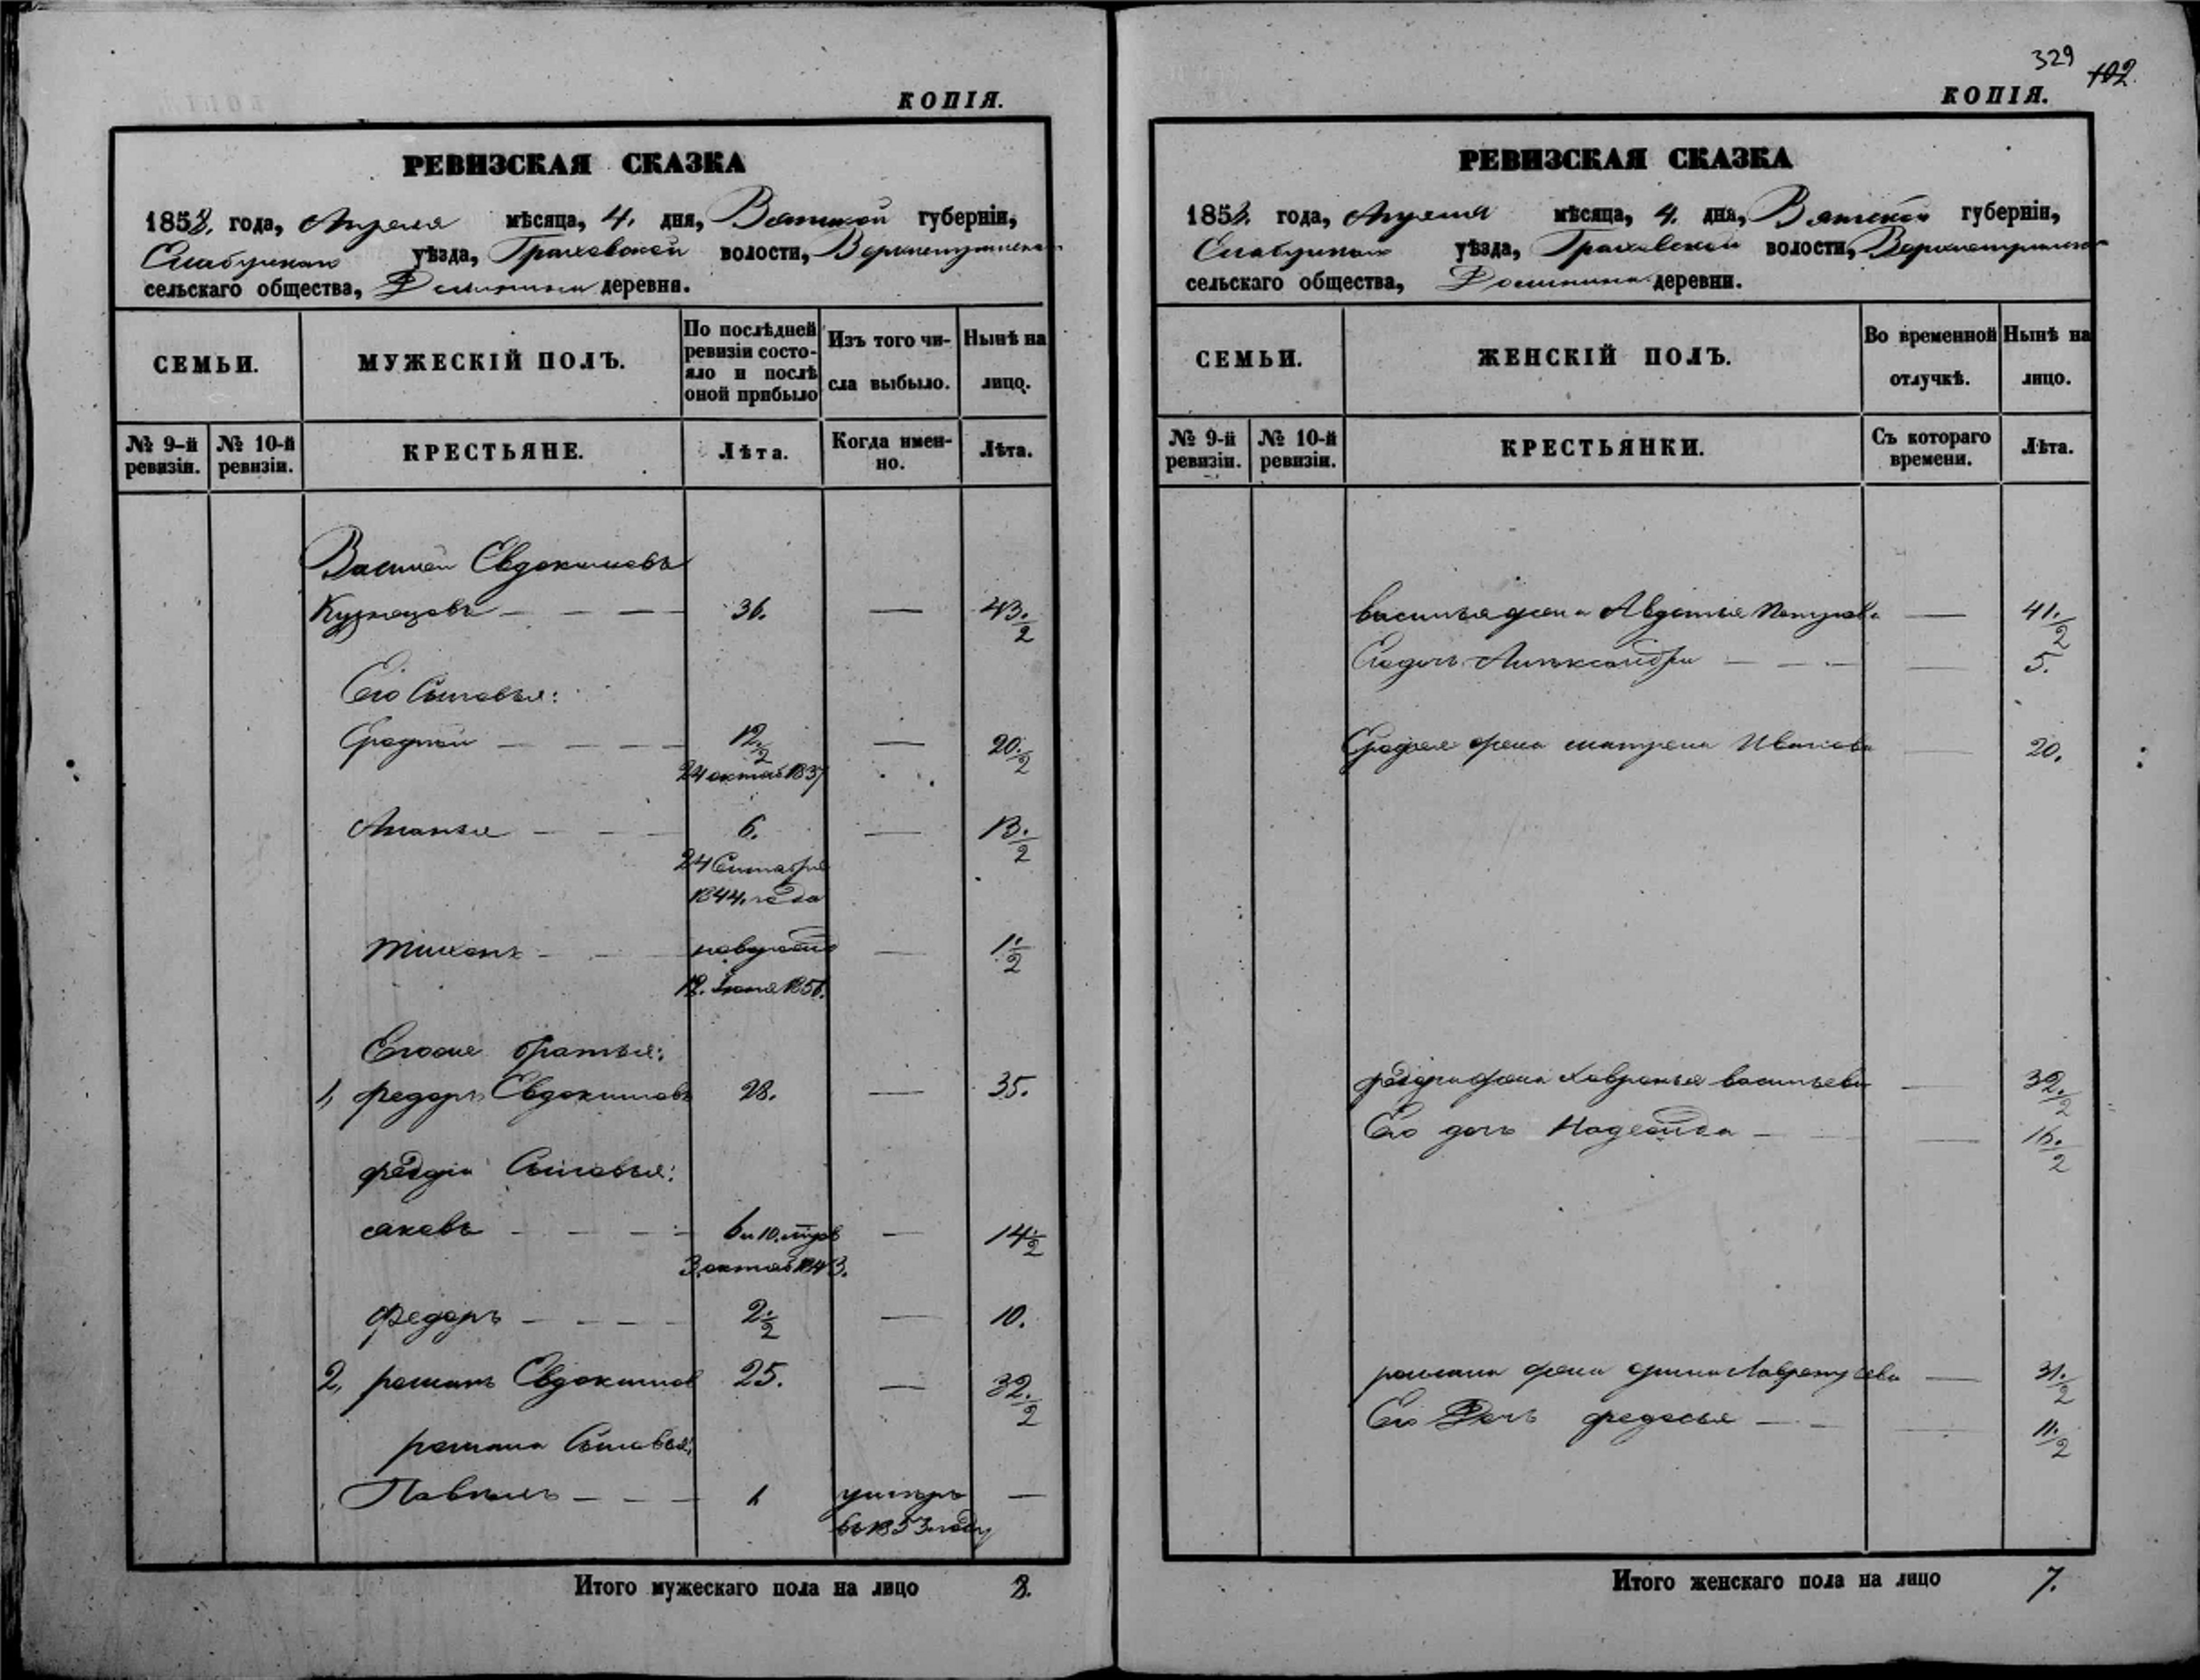 КОПІЯ.
РЕВИЗСКАЯ СКАЗКА
1858 года, Апреля мѣсяца, 4. дня, Вятской губерніи,
уѣзда, Граховской волости,
сельскаго общества, деревни.
СЕМЬИ.
МУЖЕСКІЙ ПОЛЪ.
По послѣдней ревизіи состо-
яло и послѣ оной прибыло
Изъ того чи-
сла выбыло.
Нынѣ на
лицо.
№ 9-й ревизіи.
№ 10-й ревизіи.
КРЕСТЬЯНЕ.
Лѣта.
Когда имен-
но.
Лѣта.
Василей Евдокимовъ
Кузнецовъ — — — 36. — 43.½
Его Сыновья:
12½ — 20.½
24 октяб 1837
Ананья — — 6. — 13.½
24 Сентабря
1844. года
Тихонъ — — — 1.½
1856.
братья:
1, федоръ Евдокимовъ 28. — 35.
Сыновья:
— — — — — 14½
3. октяб 1843.
федоръ — — — 2.½ — 10.
2, романъ Евдокимов 25. — 32.½
романа Сыновья:
— — — 1 умеръ —
въ 1853 году
Итого мужескаго пола на лицо 8.
329
102
КОПІЯ.
РЕВИЗСКАЯ СКАЗКА
1858. года, Апреля мѣсяца, 4. дна, Вятской губерніи,
уѣзда, Граховской волости,
сельскаго общества, деревни.
СЕМЬИ.
ЖЕНСКІЙ ПОЛЪ.
Во временной
отлучкѣ.
Нынѣ на
лицо.
№ 9-й ревизіи.
№ 10-й ревизіи.
КРЕСТЬЯНКИ.
Съ котораго
времени.
Лѣта.
василья жена Авдотья Петрова — 41.½
Александра — — — — 5.
жена матрена Иванова — 20.
жена Хавронья васильева — 32.½
Его дочь Надежда — — — 16.½
романа жена — 31.½
Его Дочь федосья — — — 11.½
Итого женскаго пола на лицо 7.